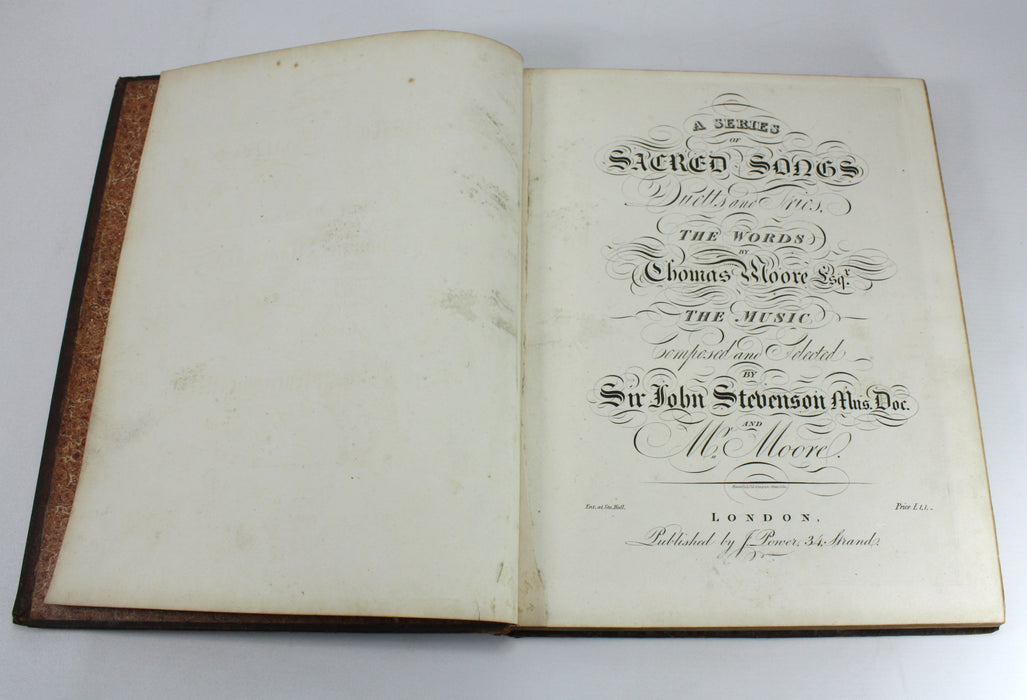 A SERIES
OF
SACRED SONGS
Duetts and Trios,
THE WORDS
BY
Thomas Moore Esqr.
THE MUSIC
Composed and Selected
BY
Sir John Stevenson Mus. Doc.
AND
Mr. Moore.
Ent. at Sta. Hall.
Price £1,1.-
LONDON,
Published by J. Power, 34, Strand.